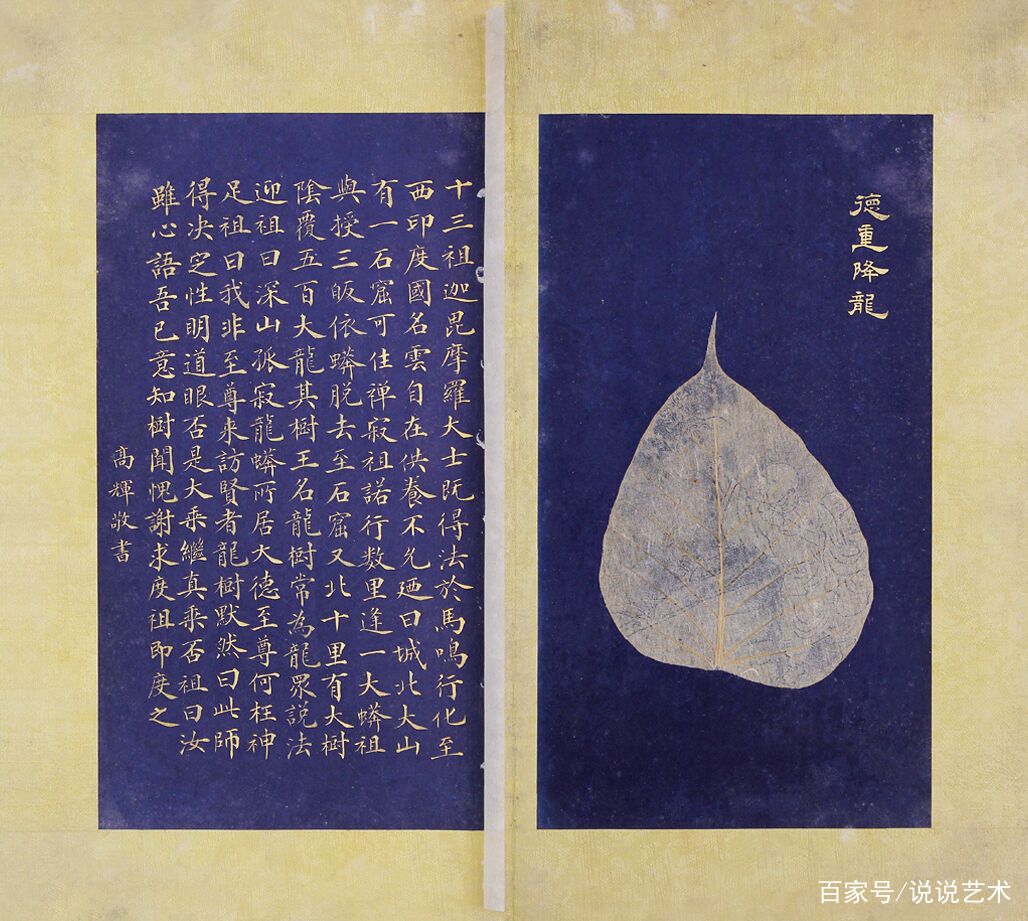 徳重降龍
十三祖迦毘摩羅大士既得法於馬鳴行化至
西印度國名雲自在供養不允廼曰城北大山
有一石窟可住禅寂祖諾行数里逢一大蟒祖
與授三皈依蟒脱去至石窟又北十里有大樹
陰覆五百大龍其樹王名龍樹常為龍眾説法
迎祖曰深山孤寂龍蟒所居大德至尊何枉神
足祖曰我非至尊来訪賢者龍樹默然曰此師
得决定性明道眼否是大乘繼真乘否祖曰汝
雖心語吾已意知樹聞愧謝求度祖即度之
高輝敬書
百家号/说说艺术